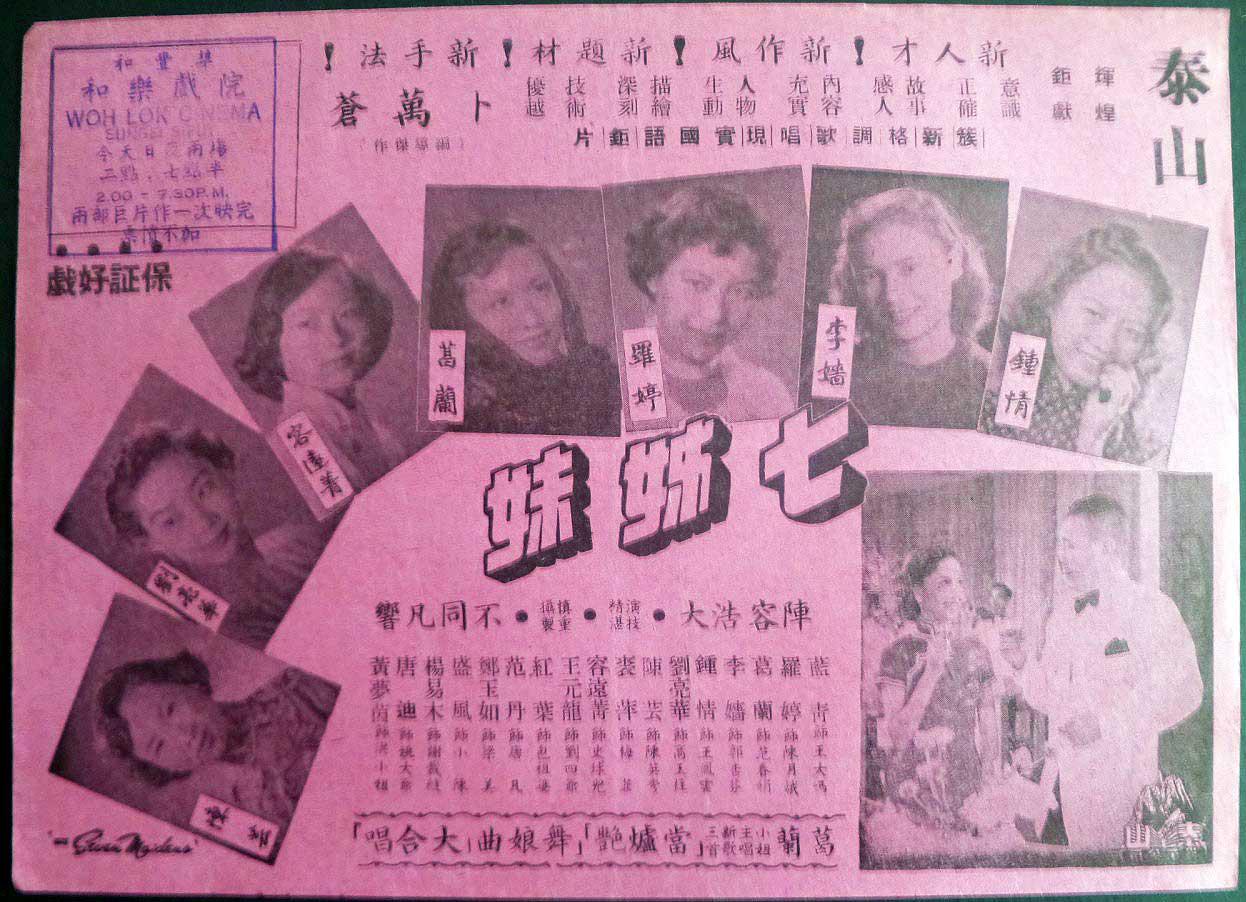 和豐華
和樂戲院
WOH LOK CINEMA
SUNGEI SIPUT
今天日夜兩場
二點．七點半
2.00 - 7.30P.M.
兩部巨片作一次映完
票價不加
保証好戲
泰山
輝煌鉅獻
新人才！新作風！新題材！新手法！
意識正確 故事感人 內容充實 人物生動 描繪深刻 技術優越
簇新格調歌唱現實國語鉅片
卜萬蒼
(編導傑作)
鍾情
李嬙
羅婷
葛蘭
容遠菁
劉亮華
陳芸
七姊妹
陣容浩大●演技精湛●慎重攝製●不同凡響
藍青飾王大媽
羅婷飾陳月娥
葛蘭飾范春娟
李嬙飾郭杏芬
鍾情飾王鳳雲
劉亮華飾高玉住
陳芸飾陳英秀
裘萍飾梅蓉
容遠菁飾史球兒
王元龍飾劉四爺
紅葉飾包租婆
范丹飾唐凡
鄭玉如飾梁美
盛風飾小陳
楊易木飾謝裁縫
唐迪飾姚大爺
黃夢茵飾洪小姐
葛蘭小姐主唱新歌三首「當爐艷」「舞娘曲」「大合唱」
"THE Seven Maidens"
泰山